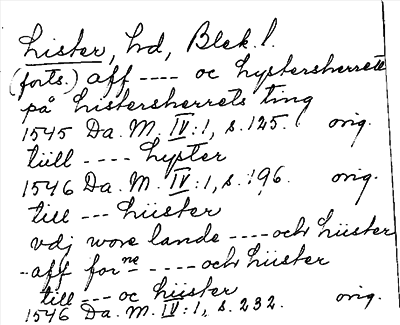 Lister, hd, Blek. l.
(forts.) aff ---- oc Lystersherrett
på Listersherrets ting
1545 Da. M. IV:1, s. 125. orig.
tiill ---- Lyster
1546 Da. M. IV:1, s. 196. orig.
till --- Liister
vdj wore lande ---- och Liister
aff forne ---- och Liister
till --- oc Liister
1546 Da. M. IV:1, s. 232. orig.